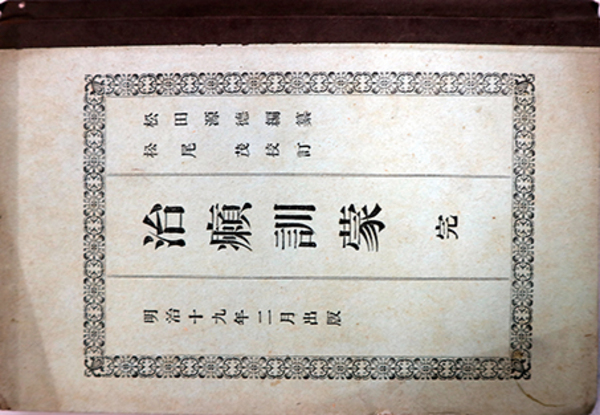 松田源德編纂
松尾茂校訂
治癩訓蒙 完
明治十九年二月出版